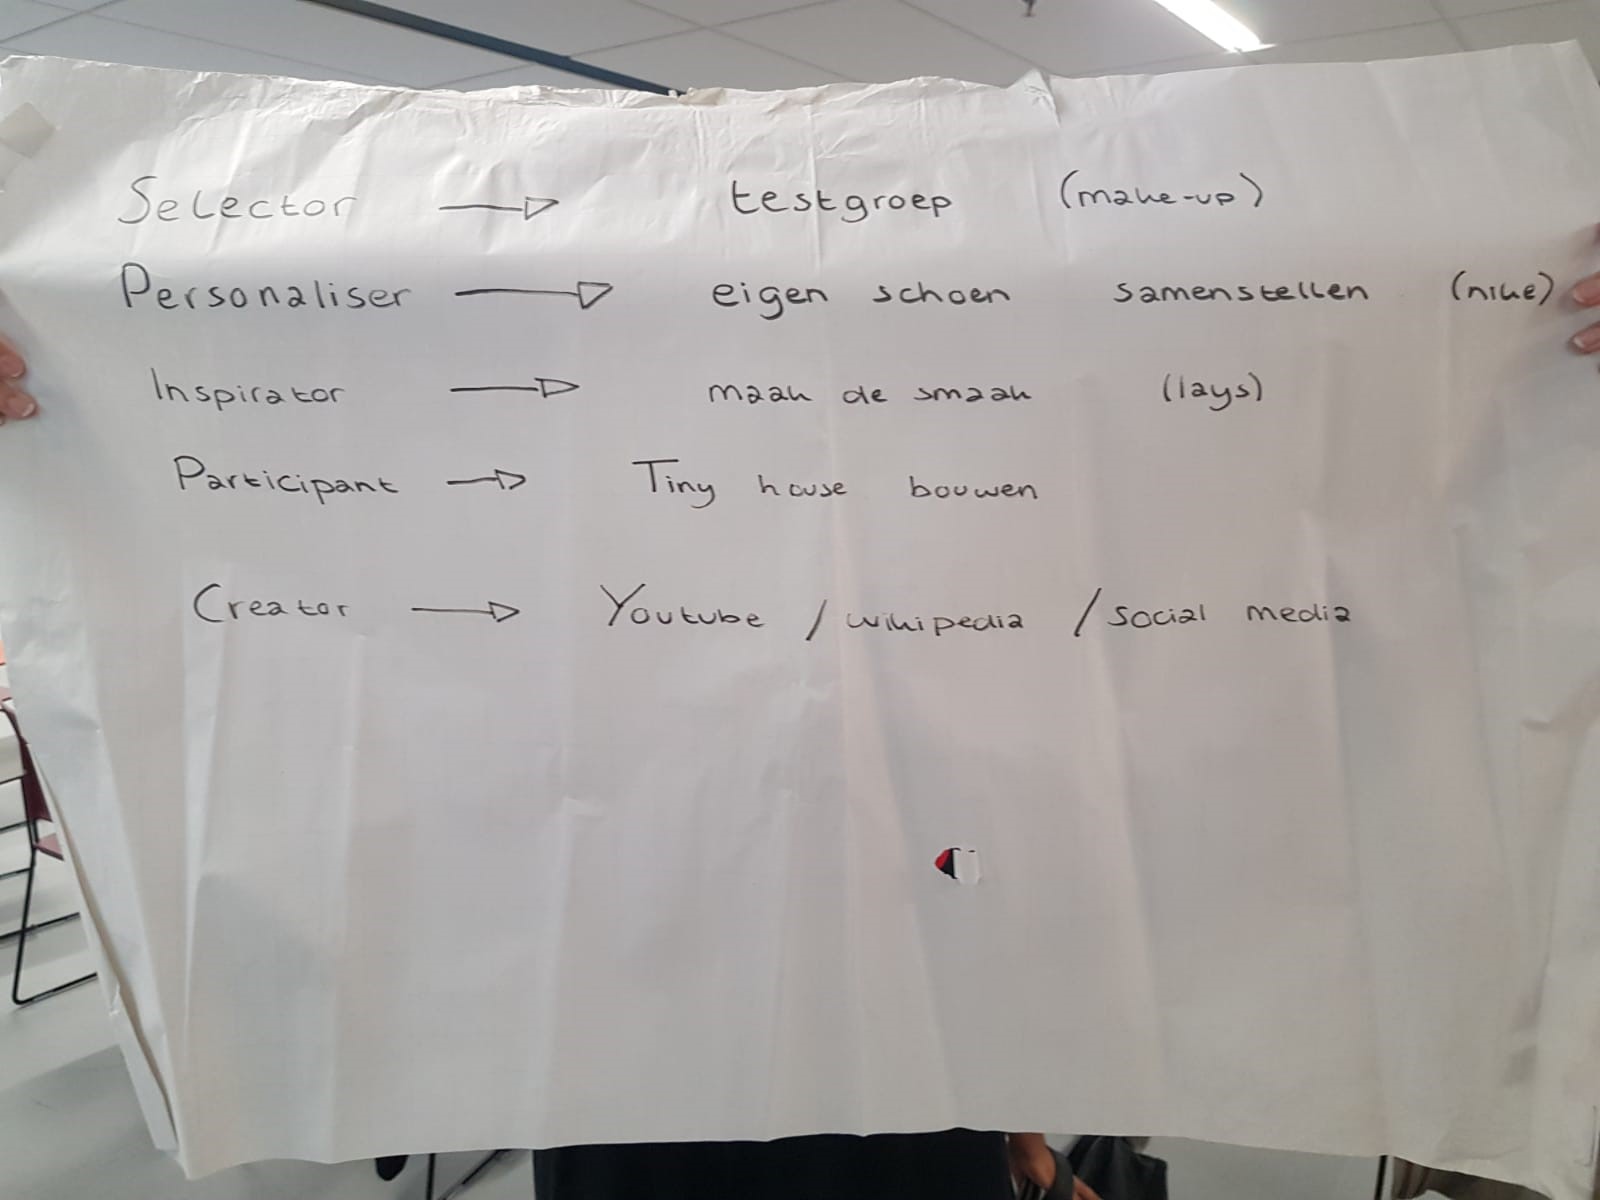 Selector → testgroep (make-up)
Personaliser → eigen schoen samenstellen (nike)
Inspirator → maak de smaak (lays)
Participant → Tiny house bouwen
Creator → Youtube / wikipedia / social media